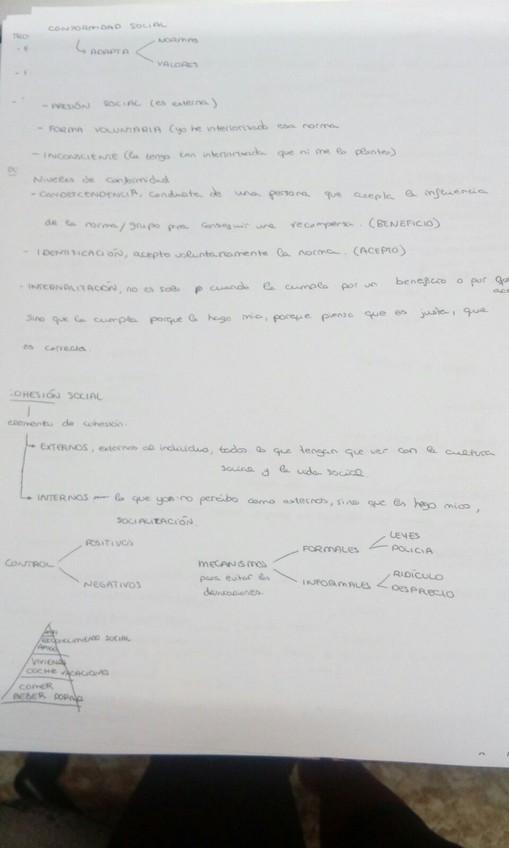 CONFORMIDAD SOCIAL
↳ ADAPTA
NORMAS
VALORES
- PRESIÓN SOCIAL (es externa)
- FORMA VOLUNTARIA (yo he interiorizado esa norma
- INCONSCIENTE (la tengo tan interiorizada que ni me lo planteo)
Niveles de conformidad
- CONDESCENDENCIA, conducta de una persona que acepta la influencia
de la norma/grupo para conseguir una recompensa. (BENEFICIO)
- IDENTIFICACIÓN, acepto voluntariamente la norma. (ACEPTO)
- INTERNALITACIÓN, no es solo cuando la cumplo por un beneficio o por que
sino que la cumplo porque la hago mia, porque pienso que es justa, que
es correcta.
COHESIÓN SOCIAL
elementos de cohesión.
↳ EXTERNOS, externos al individuo, todos lo que tengan que ver con la cultura
social y la vida social
↳ INTERNOS — lo que yo no percibo como externos, sino que los hago mios,
SOCIALITACIÓN.
CONTROL
POSITIVOS
NEGATIVOS
MECANISMOS
para evitar las
desviaciones.
FORMALES
LEYES
POLICIA
INFORMALES
RIDÍCULO
DESPRECIO
RECONOCIMIENTO SOCIAL
VIVIENDA
COCHE VACACIONES
COMER
BEBER DORMIR